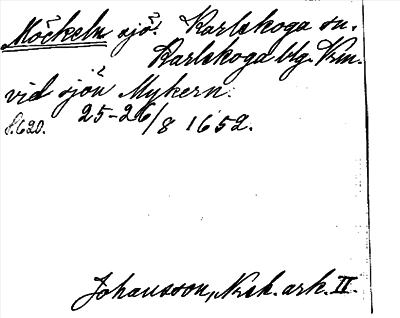 Möckeln sjö. Karlskoga sn.
Karlskoga blg. Krm.
vid sjön Mykern.
S.620. 25-26/8 1652.
Johansson, Nsk. ark. II.